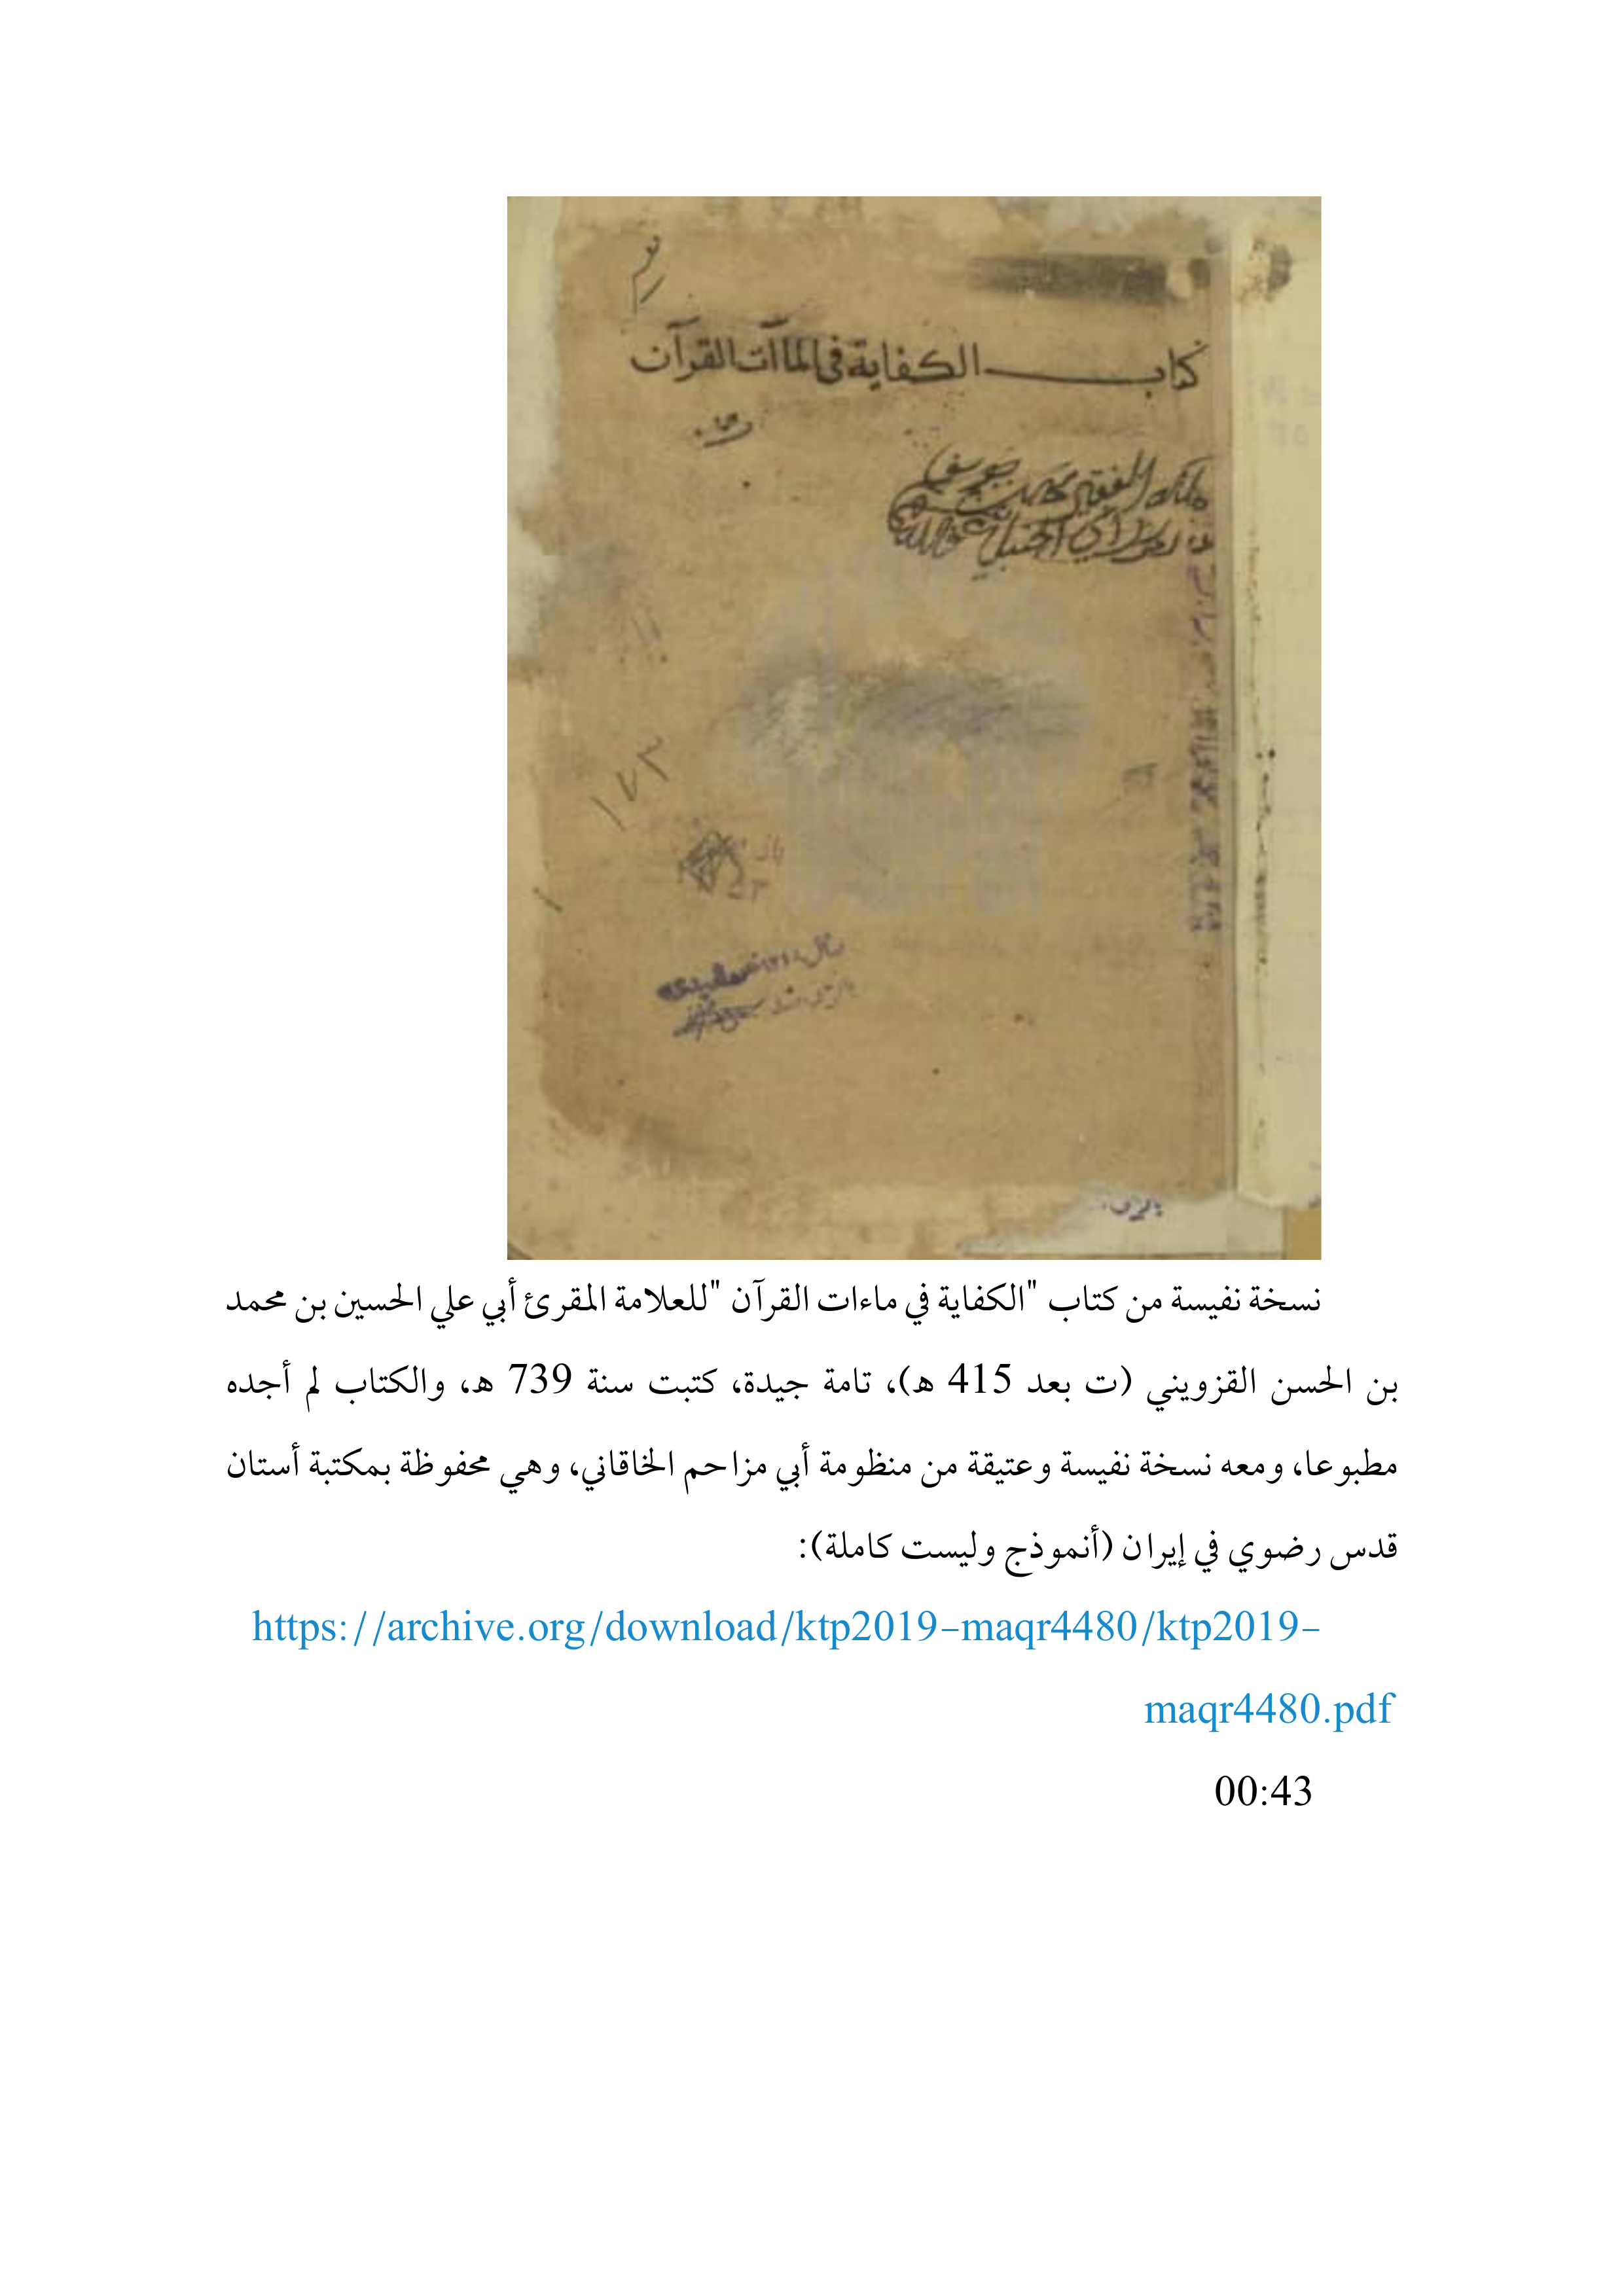 كتاب الكفاية في الماآت القرآن
ملكه الفقير يوسف
الحنبلي
١٧٣
نسخة نفيسة من كتاب "الكفاية في ماءات القرآن "للعلامة المقرئ أبي علي الحسين بن محمد
بن الحسن القزويني (ت بعد 415 هـ)، تامة جيدة، كتبت سنة 739 هـ، والكتاب لم أجده
مطبوعا، ومعه نسخة نفيسة وعتيقة من منظومة أبي مزاحم الخاقاني، وهي محفوظة بمكتبة أستان
قدس رضوي في إيران (أنموذج وليست كاملة):
https://archive.org/download/ktp2019-maqr4480/ktp2019-
maqr4480.pdf
00:43